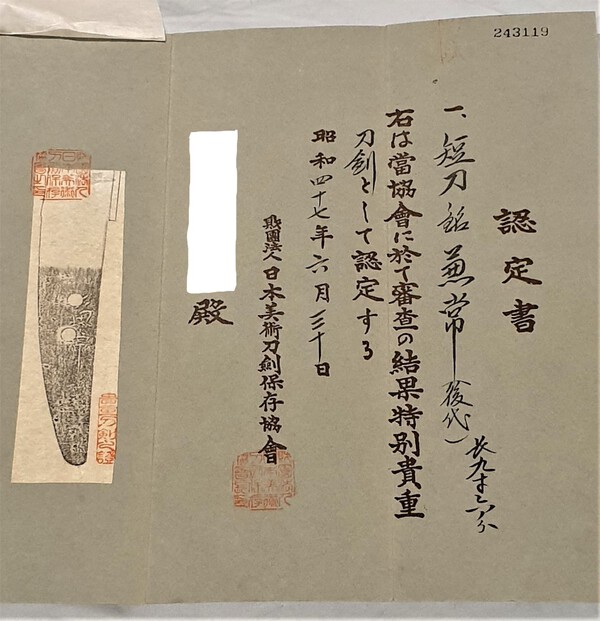 243119
認定書
一、短刀 銘 兼常(後代)
長九寸六分
右は當協會に於て審査の結果特別貴重
刀劍として認定する
昭和四十七年六月三十日
財團法人日本美術刀劍保存協會
殿